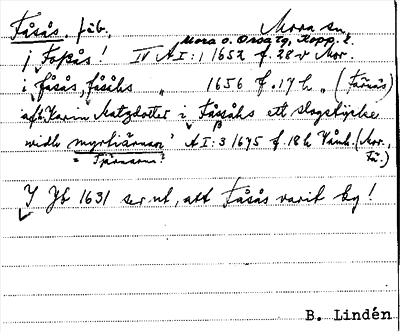 Fåsås. fäb. Mora sn.
Mora o. Orsa tg, Kopp. l.
j Foßås! IV A I:1 1652 f. 28 v Mor.
i fåsås, fåsåhs " 1656 f. 17 h " (Färnäs)
afl. Karin Matzdotter i Fåssåhs ett slogstycke
widh myrtiärnan' A I:3 1675 f. 18 h Vånh. (Mor.,
= Tjärnarna? Fä.)
I Jb 1631 ser ut, att Fåsås varit by!
B. Lindén